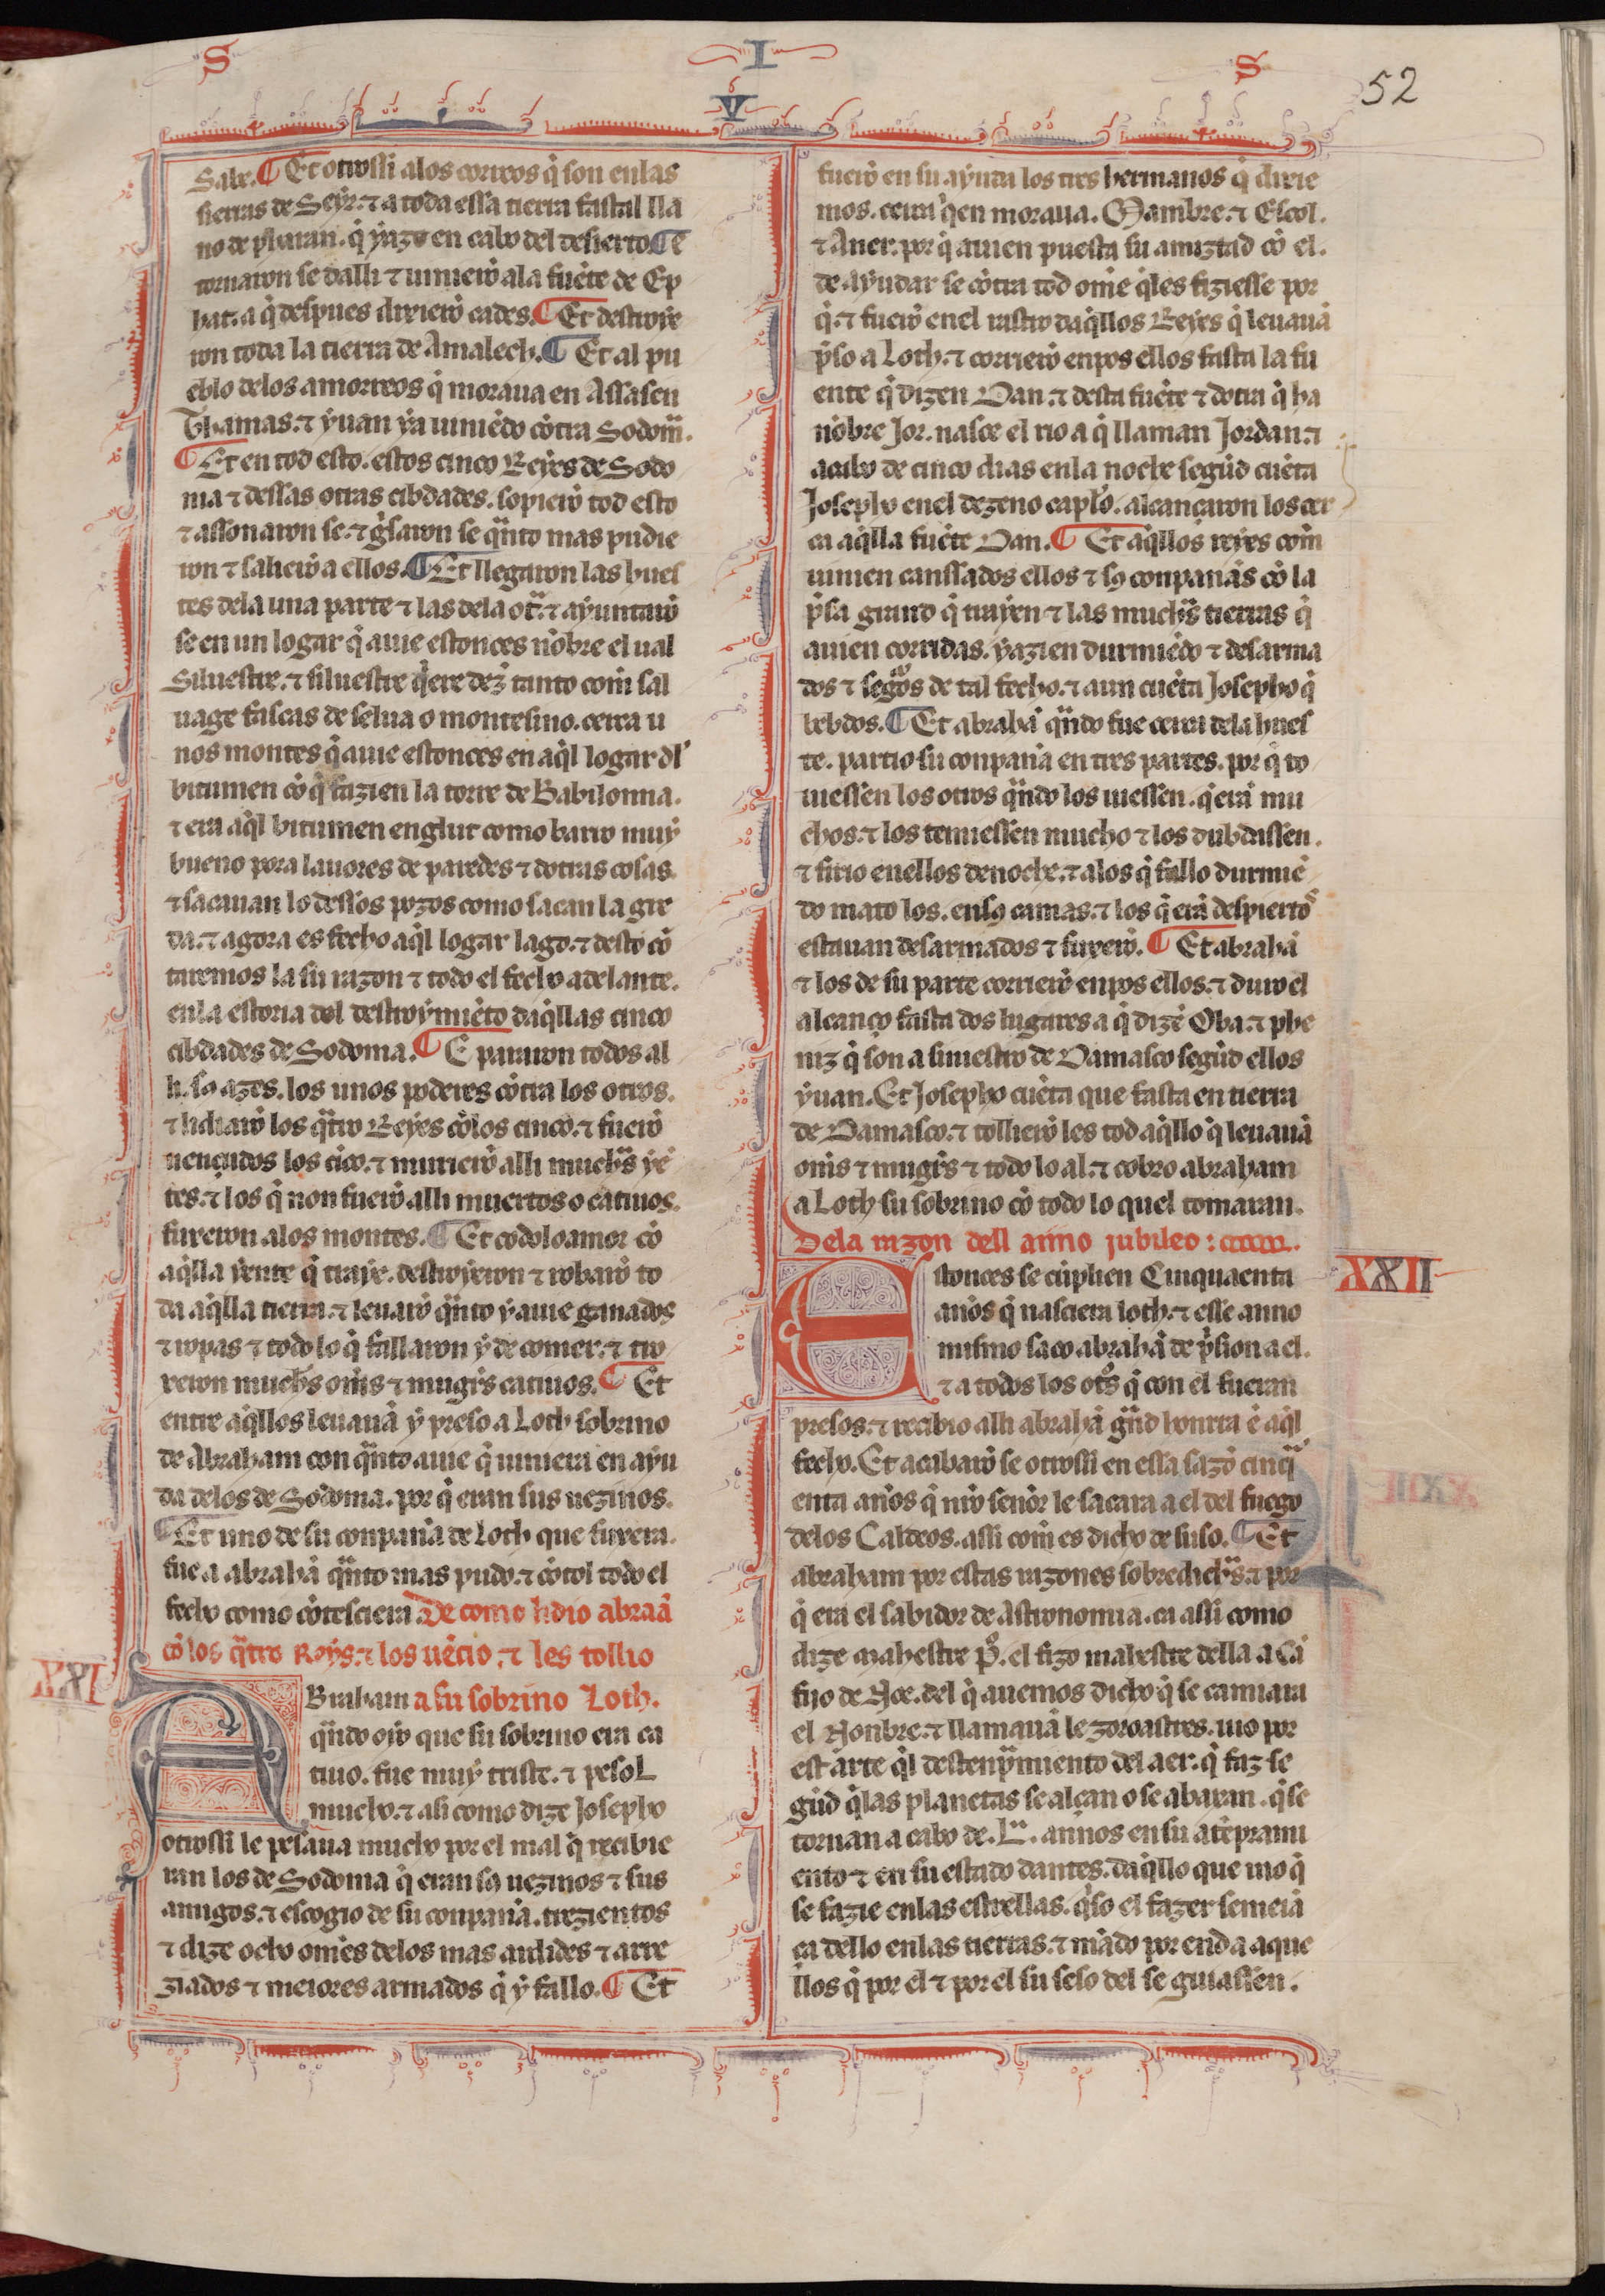 S I S
52
V
Sale. ¶ Et otrossi a los correos q̇ son en las
sierras de Seyr. ⁊ a toda essa tierra fastal lla
no de pharan. q̇ yaze en cabo del desierto ¶ E
tornaron se dalli ⁊ uinierō a la fuēte de Ep
hat. a q̇ despues dixierō cades. ¶ Et destroye
ron toda la tierra de Amalech. ¶ Et al pu
eblo delos amorreos q̇ moraua en Assasen
Thamas. ⁊ yuan ya uiniēdo cōtra Sodom̄.
¶ Et en tod esto. estos cinco Reyes de Sodo
ma ⁊ dessas otras cibdades. sopierō tod esto
⁊ assonaron se. ⁊ gisaron se qnto mas pudie
ron ⁊ salierō a ellos. ¶ Et llegaron las hues
tes dela una parte ⁊ las dela ot̃. ⁊ ayuntarō
se en un logar q̇ auie estonces nōbre el ual
Siluestre. ⁊ siluestre q̇ere dez̃ tanto com̄ sal
uage fascas de selua o montesino. cerca u
nos montes q̇ auie estonces en aq̇l logar dl'
bitumen cō q̇ fazien la torre de Babilonna.
⁊ era aq̇l bitumen englut como barro muy
bueno pora lauores de paredes ⁊ dotras cosas.
⁊ sacauan lo dessos pozos como sacan la gre
da. ⁊ agora es fecho aq̇l logar lago. ⁊ desto cō
taremos la su razon ⁊ todo el fecho adelante.
en la estoria del destroymiēto daq̇llas cinco
cibdades de Sodoma. ¶ E pararon todos al
li. so azes. los unos poderes cōtra los otros.
⁊ lidiarō los qtro Reyes cōlos cinco. ⁊ fuerō
uençudos los cīco. ⁊ murierō alli much̃s yē
tes. ⁊ los q̇ non fuerō alli muertos o catiuos.
fuxeron alos montes. ¶ Et codoloamor cō
aq̇lla yente q̇ traye. destroyeron ⁊ robarō to
da aq̇lla tierra. ⁊ leuarō qnto y auie ganados
⁊ ropas ⁊ todo lo q̇ fallaron y de comer. ⁊ tro
xeron much̃s om̄s ⁊ mugr̃s catiuos. ¶ Et
entre aq̇llos leuauā y preso a Loth sobrino
de Abraham con qnto auie q̇ uiniera en ayu
da delos de Sodoma. por q̇ eran sus uezinos.
¶ Et uno de su conpan̄a de Loth que fuxera.
fue a abrahā qnto mas pudo. ⁊ cōtol todo el
fecho como cōtesciera De como lidio abraā
cō los qtro Reys. ⁊ los uēcio. ⁊ les tollio
XXI
ABraham a su sobrino Loth.
qndo oyo que su sobrino era ca
tiuo. fue muy triste. ⁊ pesoL
mucho. ⁊ asi como dize Josepho
otrossi le pesaua mucho por el mal q̇ recibie
ran los de Sodoma q̇ eran sꝯ uezinos ⁊ sus
amigos. ⁊ escogio de su conpan̄a. trezientos
⁊ dize ocho om̄es delos mas ardides ⁊ arre
ziados ⁊ meiores armados q̇ y fallo. ¶ Et
fuerō en su ayuda los tres hermanos q̇ dixie
mos. cerca q̇en moraua. Mambre. ⁊ Escol.
⁊ Aner. por q̇ auien puesta su amiztad cō el.
de ayudar se cōtra tod om̄e q̇les fiziesse por
q̇. ⁊ fuerō enel rastro daq̇llos Reyes q̇ leuauā
p̃so a Loth. ⁊ corrierō enpos ellos fasta la fu
ente q̇ dizen Dan. ⁊ desta fuēte ⁊ dotra q̇ ha
nōbre Jor. nasce el rio a q̇ llaman Jordan. ⁊
acabo de cinco dias en la noche segūd cuēta
Josepho enel dezeno caplo. alcançaron los cer
ca aq̇lla fuēte Dan. ¶ Et aq̇llos reyes com̄
uinien canssados ellos ⁊ sꝯ conpan̄as cō la
p̃sa grand q̇ trayen ⁊ las much̃s tierras q̇
auien corridas. yazien durmiēdo ⁊ desarma
dos ⁊ segros de tal fecho. ⁊ aun cuēta Josepho q̇
bebdos. ¶ Et abrahā qndo fue cerca dela hues
te. partio su conpan̄a en tres partes. por q̇ to
uessen los otros qndo los uiessen. q̇ erā mu
chos. ⁊ los temiessen mucho ⁊ los dubdassen.
⁊ firio enellos denoche. ⁊ alos q̇ fallo durmiē
do mato los. en sꝯ camas. ⁊ los q̇ erā despiertos
estauan desarmados ⁊ fuxerō. ¶ Et abrahā
⁊ los de su parte corrierō enpos ellos. ⁊ duro el
alcanço fasta dos lugares a q̇ dizē Oba. ⁊ phe
niz q̇ son a siniestro de Damasco segūd ellos
yuan. Et Josepho cuēta que fasta en tierra
de Damasco. ⁊ tollierō les tod aq̇llo q̇ leuauā
om̄s ⁊ mugr̃s ⁊ todo lo al. ⁊ cobro abraham
a Loth su sobrino cō todo lo quel tomaran.
Dela razon dell anno jubileo:
XXII
Estonces se cūplien Cinquaenta
an̄os q̇ nasciera loth. ⁊ esse anno
mismo saco abrahā de p̃sion a el.
⁊ a todos los otr̃s q̇ con el fueran
presos. ⁊ recibio alli abrahā gnd honrra ē aq̇l
fecho. Et acabarō se otrossi en essa sazō cinq
enta an̄os q̇ nrō sen̄or le sacara a el del fuego
delos Caldeos. assi com̄ es dicho de suso. ¶ Et
abraham por estas razones sobredich̃s. ⁊ por
q̇ era el sabidor de Astronomia. ca assi como
dize mahestre P̊. el fizo mahestre della a Cā
fijo de Noe. del q̇ auemos dicho q̇ se camiara
el Nonbre. ⁊ llamauā le zoroastres. uio por
est arte q̇l destenpramiento del aer. q̇ faz se
gūd q̇las planetas se alçan o se abaxan. q̇ se
tornan a cabo de .L. annos en su atēprami
ento ⁊ en su estado dantes. daq̇llo que uio q̇
se fazie enlas estrellas. q̇so el fazer semeiā
ça dello enlas tierras. ⁊ mādo por end a aque
llos q̇ por el ⁊ por el su seso del se guiassen.